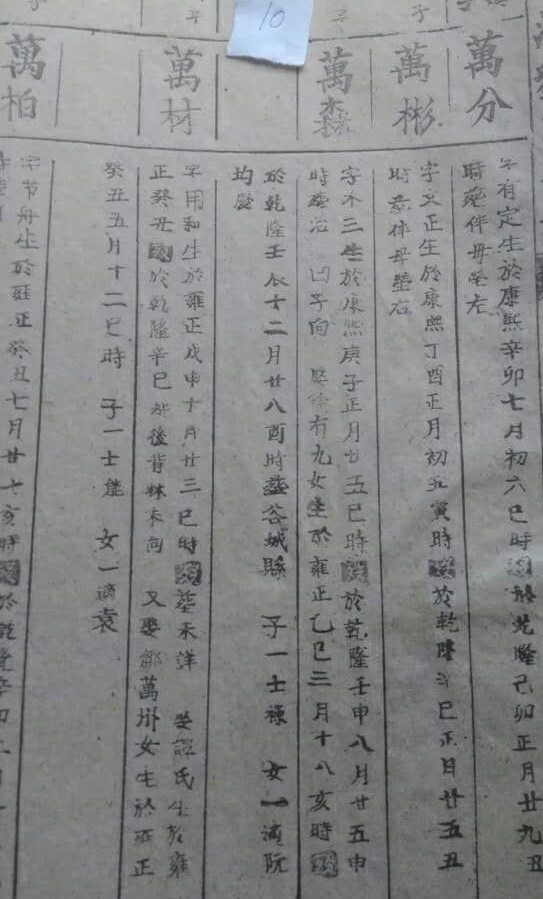 10
萬分
字有定生於康熙辛卯七月初六巳時於乾隆己卯正月廿九丑
時葬伴母塋左
萬彬
字文正生於康熙丁酉正月初五寅時於乾隆辛巳正月廿五丑
時葬伴母塋右
萬森
字木三生於康熙庚子正月廿五巳時於乾隆壬申八月廿五申
時葬 凹子向 有九女生於雍正乙巳三月十八亥時
於乾隆壬辰十二月廿八酉時葬谷城縣 子一士祿 女一適阮
均
萬材
字用和生於雍正戊申十月廿三巳時葬未詳 娶譚氏生於雍
正癸丑於乾隆辛巳 後背林 向 又娶鄒萬州女生於雍正
癸丑五月十二巳時 子一士能 女一適袁
萬柏
字節舟生於雍正癸丑七月廿七亥時於乾隆辛卯